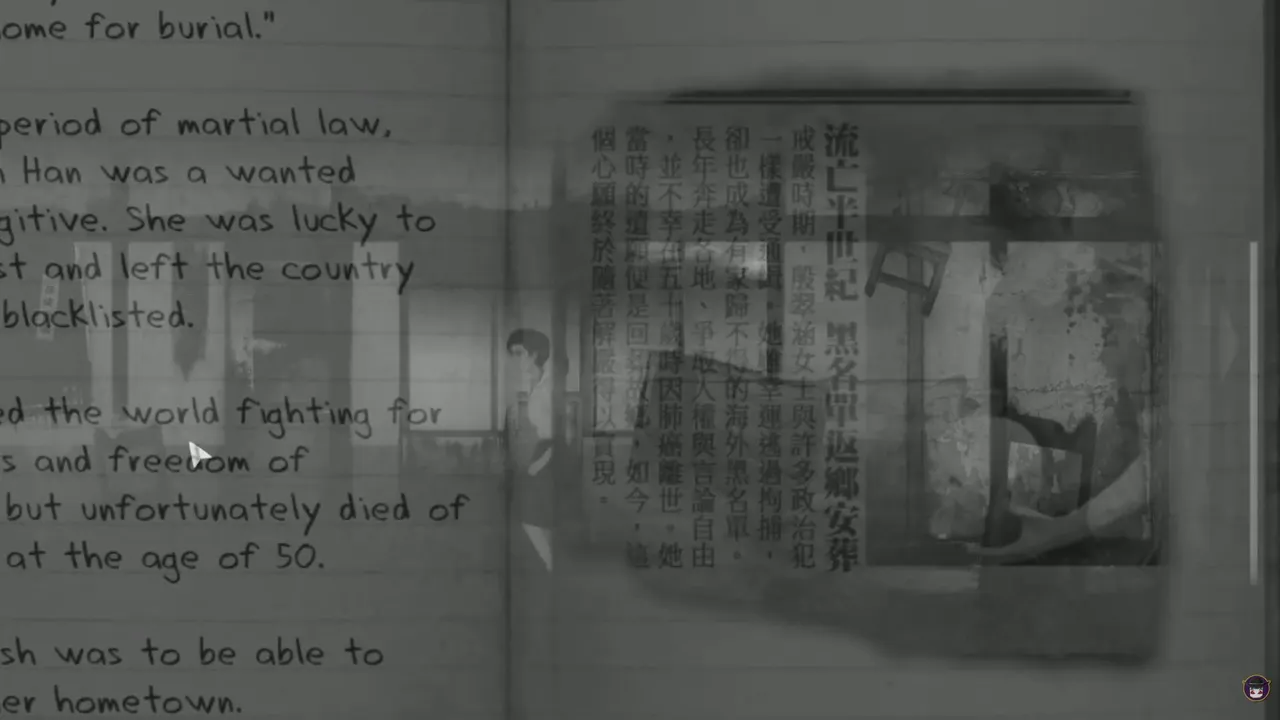 ome for burial."
period of martial law,
Han was a wanted
gitive. She was lucky to
st and left the country
blacklisted.
ed the world fighting for
s and freedom of
but unfortunately died of
at the age of 50.
sh was to be able to
er hometown.
流亡半世紀 黑名單返鄉安葬
戒嚴時期，殷翠涵女士與許多政治犯
一樣遭受通緝。她雖幸運逃過拘捕，
卻也成為有家歸不得的海外黑名單。
長年奔走各地、爭取人權與言論自由
，並不幸在五十歲時因肺癌離世。她
當時的遺願便是回到故鄉，如今，這
個心願終於隨著解嚴得以實現。